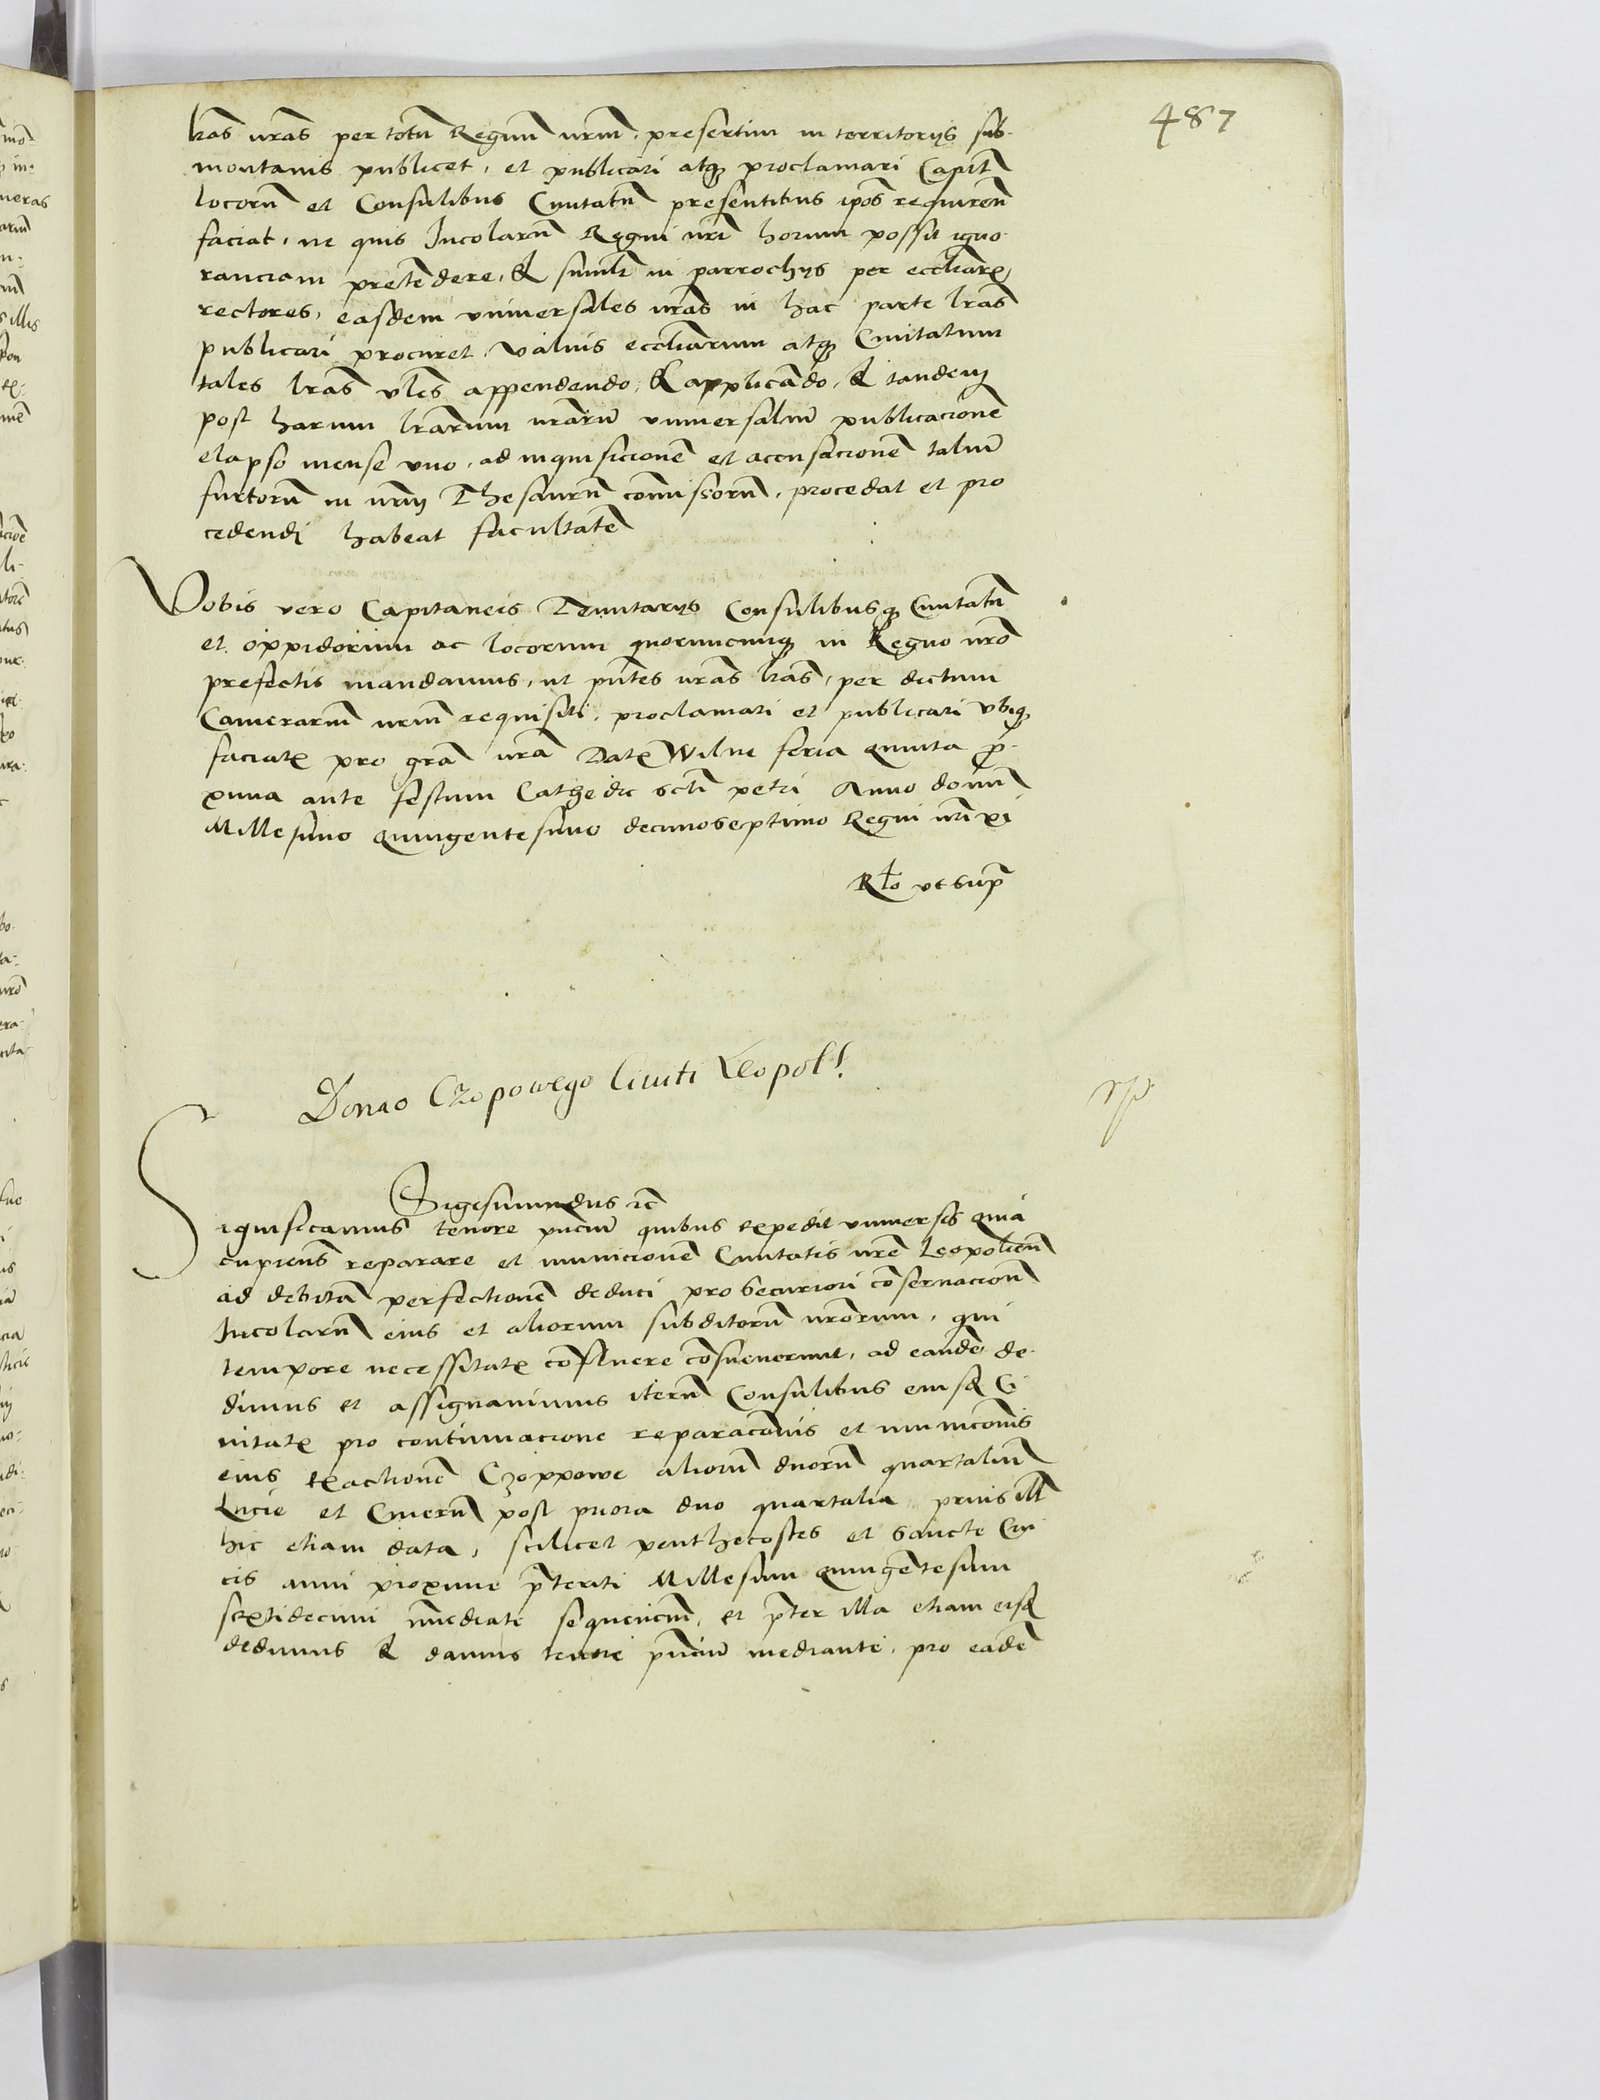 487
lras nras per totu Regnu nrm, presertim in territorijs sub-
montanis publicet, et publicari atq proclamari Capit
locoru et Consulibus Ciuitatu presentibus ipos requiren
faciat, ne quis Incolaru Regni nri horum possit igno-
ranciam pretendere, & simili in parrochijs per eccliaru
rectores, easdem vniuersales nras in hac parte lras
publicari procuret, valuis eccliarum atq Ciuitatum
tales lras vles appendendo, & applicado, & tandem
post harum lrarum nraru vniuersaliu publicacione
elapso mense vno, ad inquisicione et accusacione taliu
furtoru in nrm Thesauru comissoru, procedat et pro
cedendi habeat facultate
Vobis vero Capitaneis Tenutarijs Consulibusq Ciuitatu
et oppidorum ac locorum quorumcunq in Regno nro
prefectis mandamus, vt pntes nras lras, per dictum
Camerarium nrm requisiti, proclamari et publicari vbiq
faciatis pro gra nra Dat Wilne feria quinta pro-
xima ante festum Cathedre scti petri Anno domini
Millesimo quingentesimo decimoseptimo Regni nri xi
Rlo vt supra
Donao Czopowego Ciuiti Leopol!
Sigismundus etc
Significamus tenore pnciu quibus expedit vniuersis quia
cupiens reparare et municione Ciuitatis nre Leopolien
ad debita perfectione deduci pro securiori coseruacion
Incolaru eius et aliorum subditoru nrorum, qui
tempore necessitatis cofluere cosueuerunt, ad eande de-
dimus et assignauimus iteru Consulibus eiusd Ci
uitatis pro continuacione reparaconis et municonis
eius exactione Czoppowe alioru duoru quartaliu
Lucie et Cineru post priora duo quartalia, prius ill
hic etiam data, scilicet penthecostes et Sancte Cru
cis anni proxime pteriti Millesimi quingetesimi
sextidecimi imediate sequencium, et pter illa etiam eisd
dedimus & damus tenore pnciu mediante, pro eade